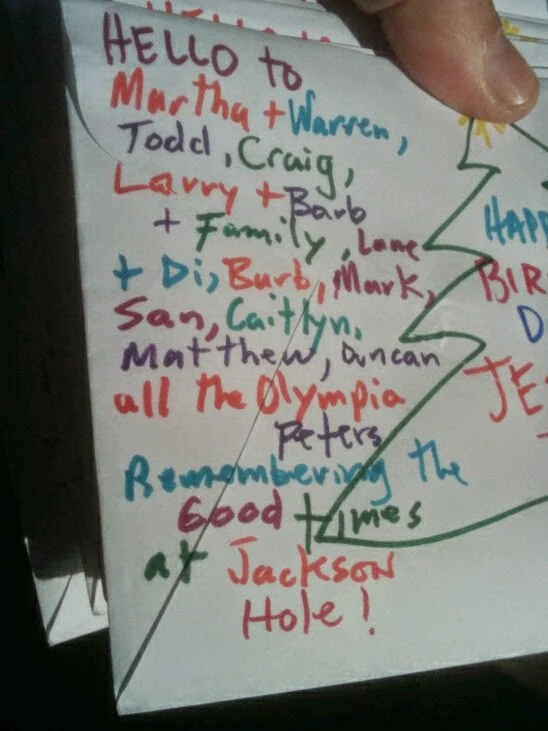 HELLO to
Martha + Warren,
Todd, Craig,
Larry + Barb
+ Family, Lane
+ Di, Barb, Mark,
San, Caitlyn,
Matthew, Duncan
all the Olympia
Peters
Remembering the
Good times
at Jackson
Hole!
HAPP
BIR
D
JE